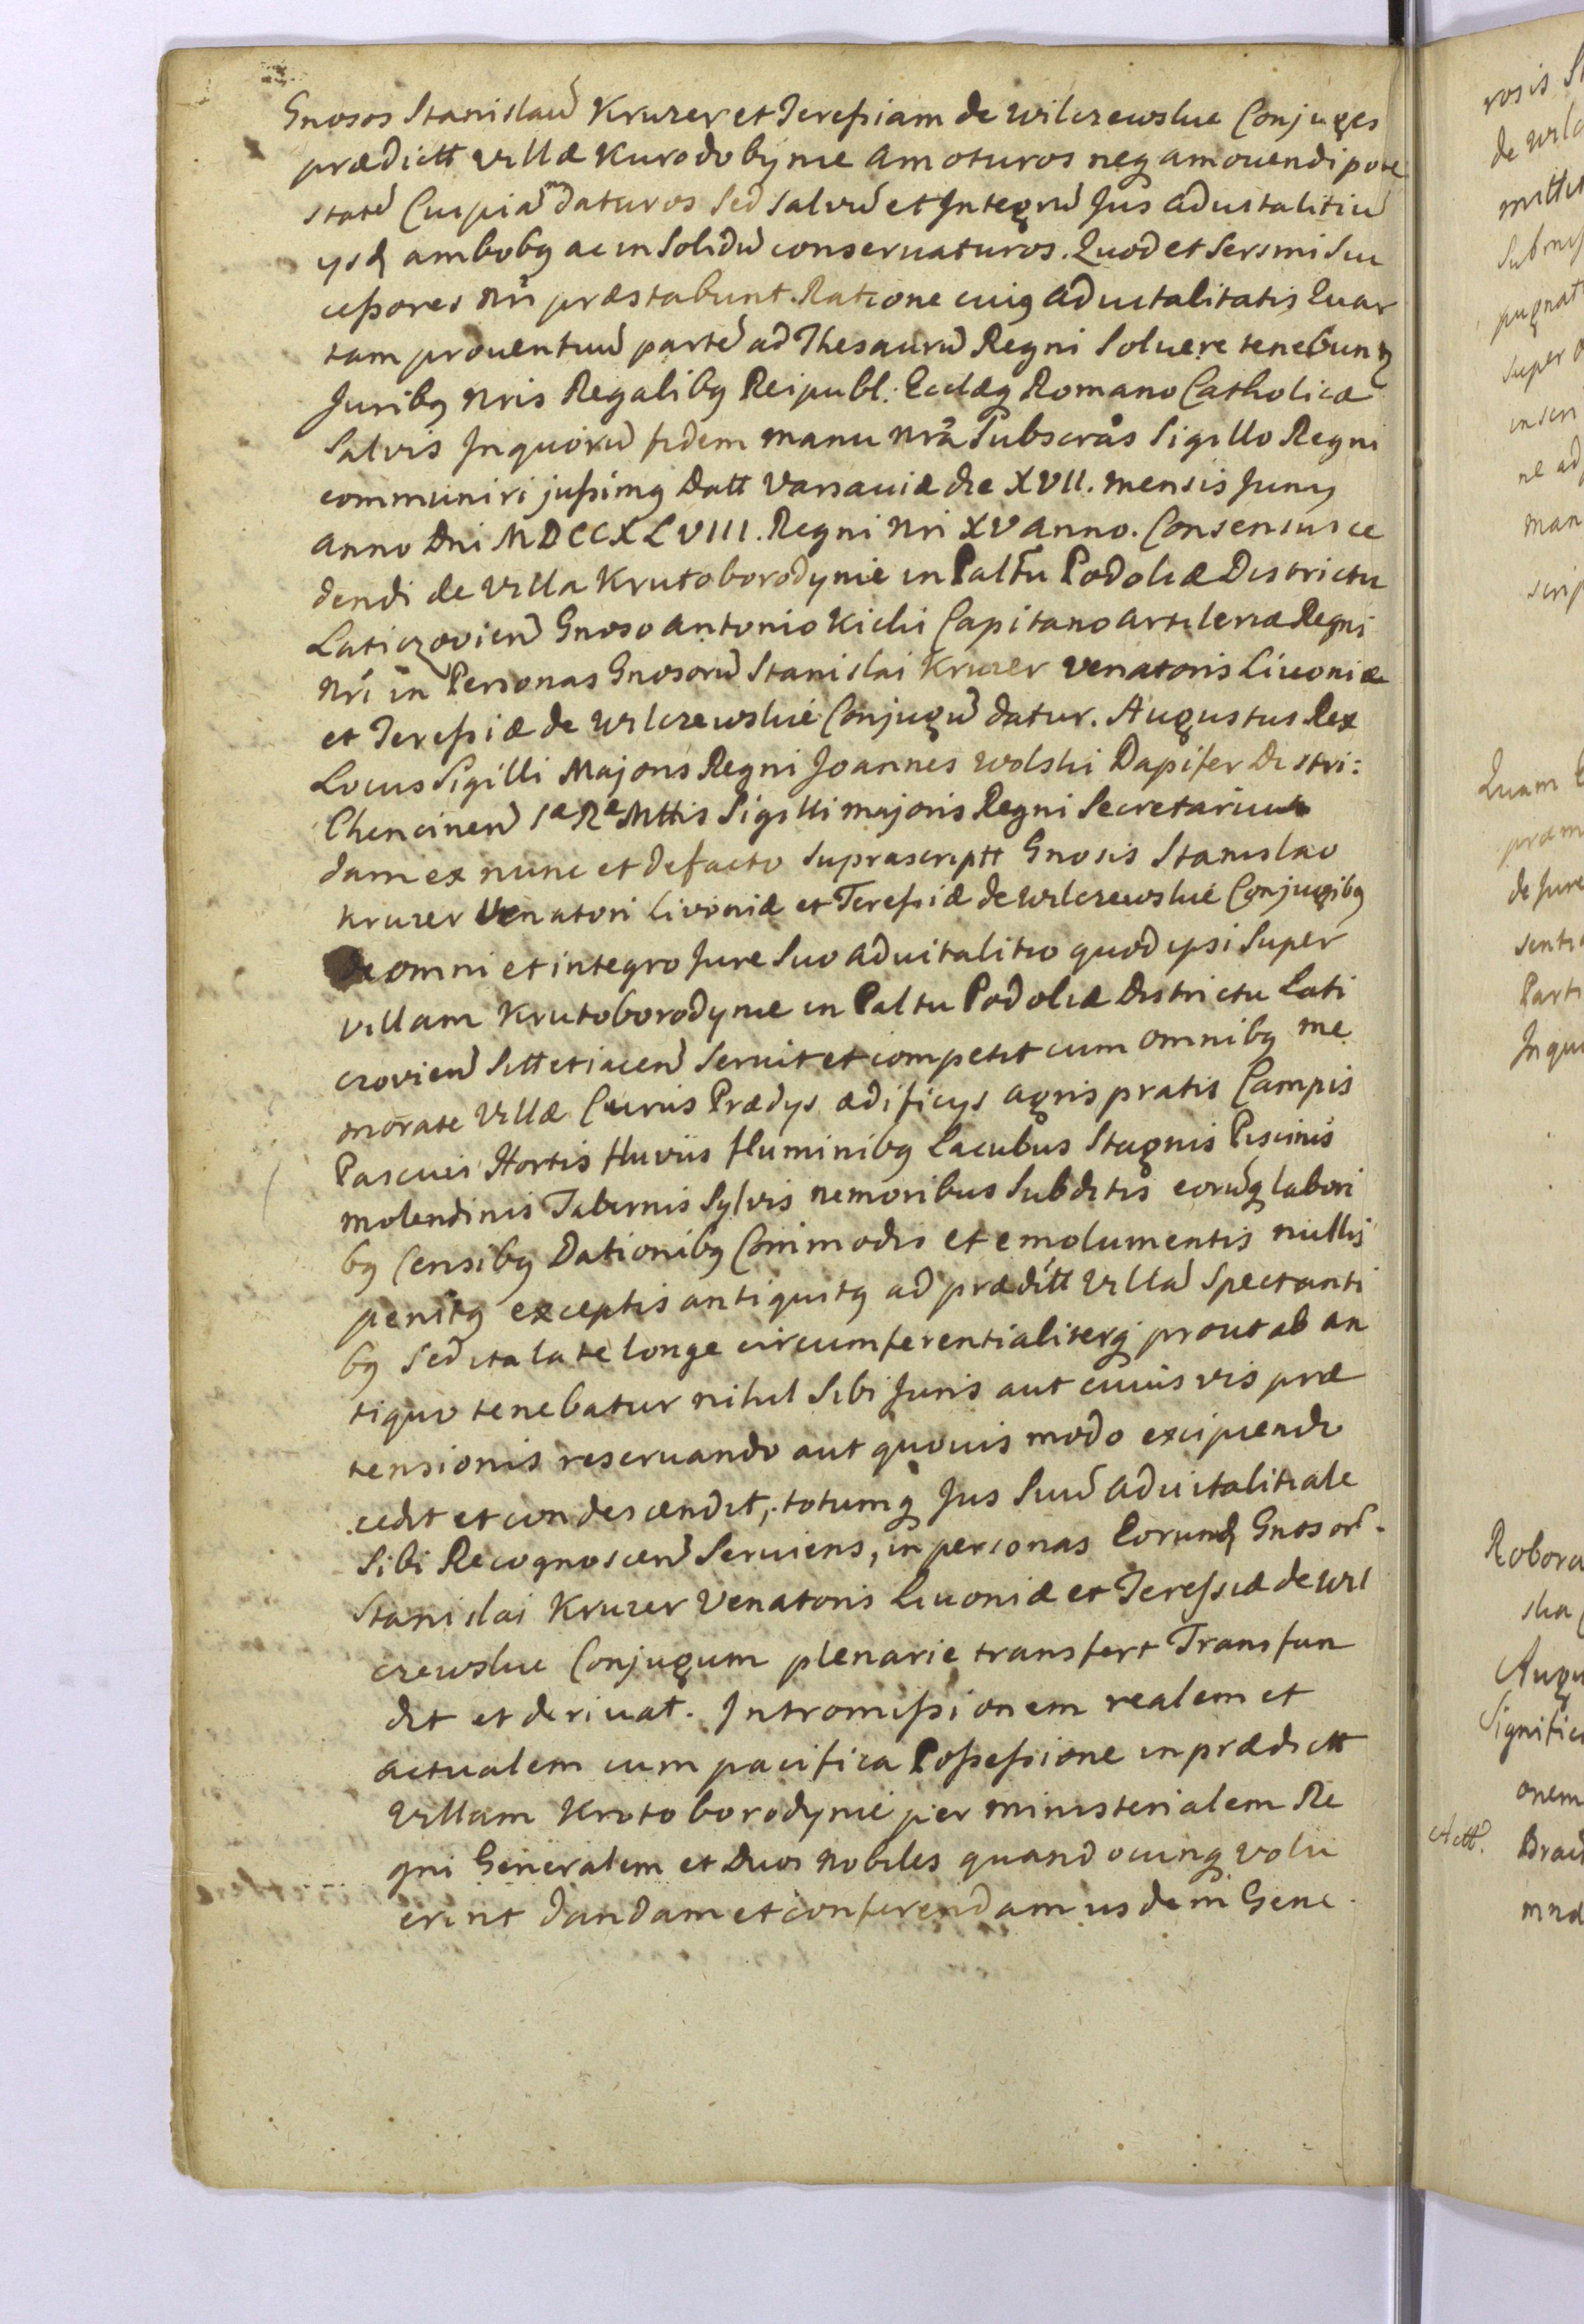 Gnosos Stanislaū Kruzer et Teressiam de Wilczewskie Conjuges
prædictt Villæ Kurodobynie amoturos neq amovendi pote
statē Cuipiam daturos Sed salvū et Integrū Jus advitalitiū
ysđ ambobq ac in Solidū conservaturos. Quod et Sersmi Suc
cessores Nri præstabunt. Ratione cuiq advitalitatis Quar
tam proventuū partē ad Thesaurū Regni Solvere tenebunt
Juribq Nris Regalibq Reipubl. Ecclæq Romano Catholicæ
Salvis Inquorū fidem manu Nrā Subscrās Sigillo Regni
communiri jussimq Datt Varsaviæ die XVII. mensis Juny
anno Dni MDCCXLVIII. Regni Nri XV anno. Consensus ce
dendi de Villa Krutoborodynie in Paltu Podoliæ Districtu
Laticzovieñ Gnoso Antonio Kicki Capitano Artileriæ Regni
Nri in Personas Gnosorū Stanislai Kruzer Venatoris Livoniæ
et Teressiæ de Wilczewskie Conjugū datur. Augustus Rex
Locus Sigilli Majoris Regni Joannes Wolski Dapifer Distri:
Chencineñ Sæ Ræ Mttis Sigilli majoris Regni Secretarius
dam ex nunc et defacto suprascriptt Gnosis Stanislao
Kruzer Venatori Livoniæ et Teressiæ de Wilczewskie Conjugibq
De omni et integro Jure Suo advitalitio quod ipsi Super
Villam Krutoborodynie in Paltu Podoliæ Districtu Lati
czovieñ Sitt et iaceñ Servit et competit cum omnibq me
morate Villæ Curiis Prædys ædificys agris pratis Campis
Pascuis Hortis fluviis fluminibq Lacubus Stagnis Piscinis
molendinis Tabernis Sylvis nemoribus Subditis eorūq labori
bq Censibq Dationibq Commodis et emolumentis nullis
penitq exceptis antiquitq ad prædītt Villā Spectanti
bq Sed ita late longe circumferentialiterq prout ab an
tiquo tenebatur nihil Sibi Juris aut cuius vis præ
tensionis reservando aut quovis modo excipiendo
cedit et condescendit, totumq Jus Suū advitalitiale
Sibi Recognosceñ Serviens, in personas Eorunđ Gnosorū
Stanislai Kruzer Venatoris Livoniæ et Teressiæ de Wil
czewskie Conjugum plenarie transfert Transfun
dit et derivat. Intromissionem realem et
actualem cum pacifica Possessione in prædictt
Villam Krotoborodynie per ministerialem Re
gni Generalem et Duos Nobiles quandocunq volu
erint dandam et conferendam iisdem Gene